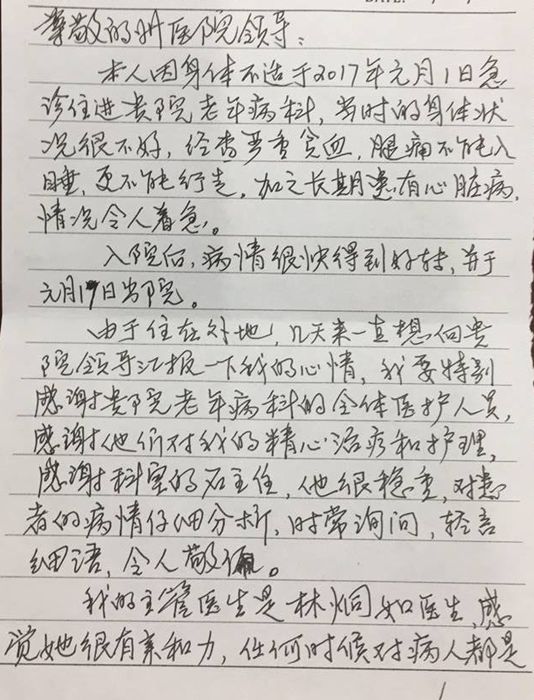 尊敬的附医院领导:
本人因身体不适于2017年元月1日急
诊住进贵院老年病科,当时的身体状
况很不好,经查严重贫血,腿痛不能入
睡,更不能行走,加之长期患有心脏病,
情况令人着急。
入院后,病情很快得到好转,并于
元月19日出院。
由于住在外地,几天来一直想向贵
院领导汇报一下我的心情,我要特别
感谢贵院老年病科的全体医护人员,
感谢他们对我的精心治疗和护理,
感谢科室的石主任,他很稳重,对患
者的病情仔细分析,时常询问,轻言
细语,令人敬佩。
我的主管医生是林炯如医生,感
觉她很有亲和力,任何时候对病人都是